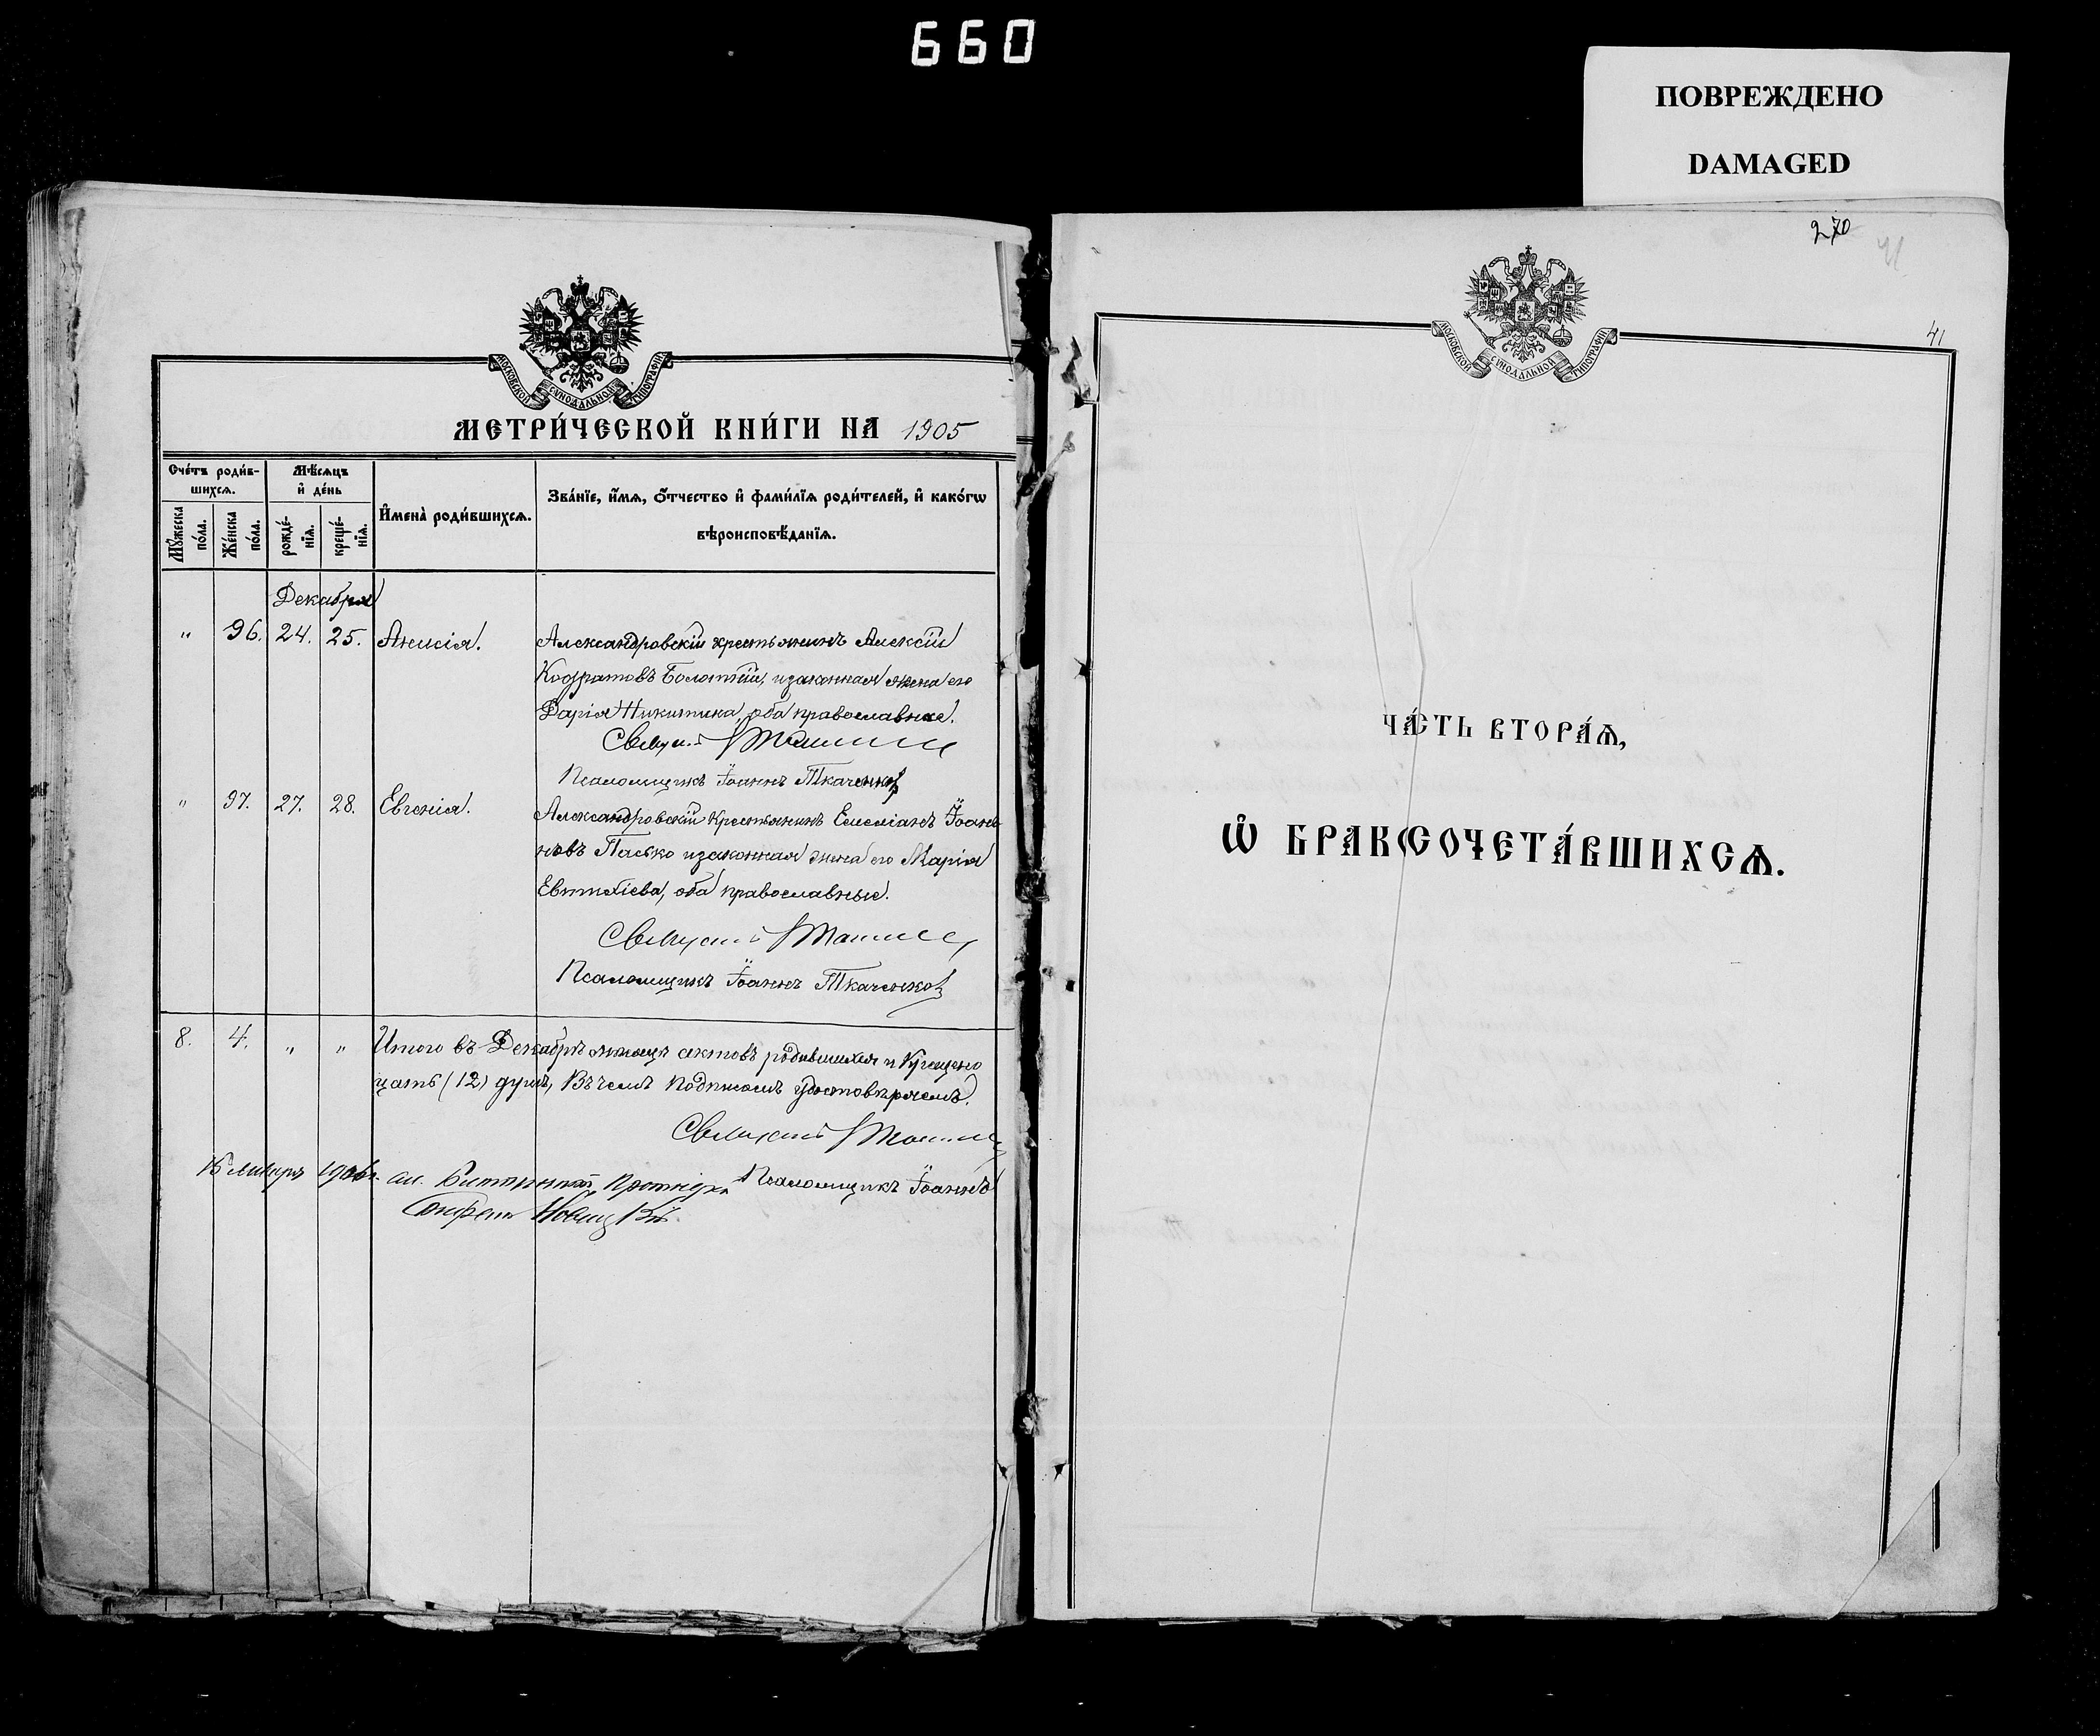 660
ПОВРЕЖДЕНО
DAMAGED
МОСКОВСКОЙ СѴНОДАЛЬНОЙ ТИПОГРАФІИ
МЕТРИ́ЧЕСКОЙ КНИ́ГИ НА 1905
Сче́тъ роди́в-
шихсѧ.
Мꙋ́жеска
по́ла.
Же́нска
по́ла.
Мѣ́сѧцъ
и҆ де́нь
рожде́-
нїѧ.
креще́-
нїѧ.
И҆мена̀ роди́вшихсѧ.
Зва́нїе, и҆́мѧ, ѻ҆́тчество и҆ фами́лїѧ роди́телей, и҆ како́гѡ
вѣроисповѣ́данїѧ.
Декабря
" 96. 24. 25. Анисія. Александровскій крестьянинъ Алексій
Кодратовъ Болотній, и законная жена его
Дарія Никитина, оба православные.
Псаломщикъ Іоаннъ Ткаченко
" 97. 27. 28. Евгенія. Александровскій крестьянинъ Емеліанъ Іоан-
новъ Пасько и законная жена его Марія
Евтихіева, оба православные.
Псаломщикъ Іоаннъ Ткаченко
8. 4. " " Итого въ Декабрѣ мѣсяцѣ актовъ родившихся и крещено
цать (12) душъ, Въ чемъ подписомъ удостовѣряемъ.
Псаломщикъ Іоаннъ
15 января 1906 г.
270
41
41
МОСКОВСКОЙ СѴНОДАЛЬНОЙ ТИПОГРАФІИ
ЧА́СТЬ ВТОРА́Ѧ,
Ѡ҆ БРАКОСОЧЕТА́ВШИХСѦ.